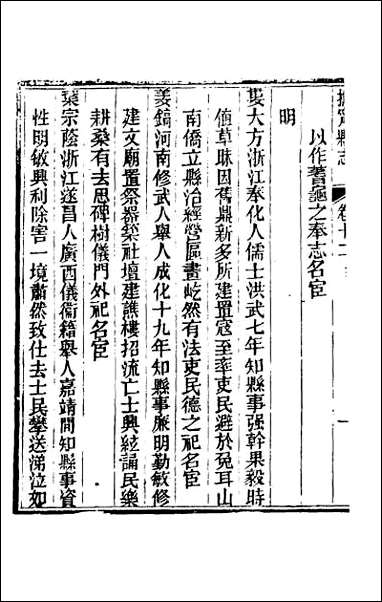 縣志
卷十二
一
以作蓍龜之奉志名宦
明
婁大方浙江奉化人儒士洪武七年知縣事强幹果毅時
值草昧因舊鼎新多所建置寇至率吏民避於兔耳山
南僑立縣治經營區畫屹然有法吏民德之祀名宦
姜鎬河南修武人舉人成化十九年知縣事廉明勤敏修
建文廟置祭器築社壇建譙樓招流亡士興絃誦民樂
耕桑有去思碑樹儀門外祀名宦
葉宗蔭浙江遂昌人廣西儀衞籍舉人嘉靖間知縣事資
性明敏興利除害一境肅然致仕去士民攀送涕泣如